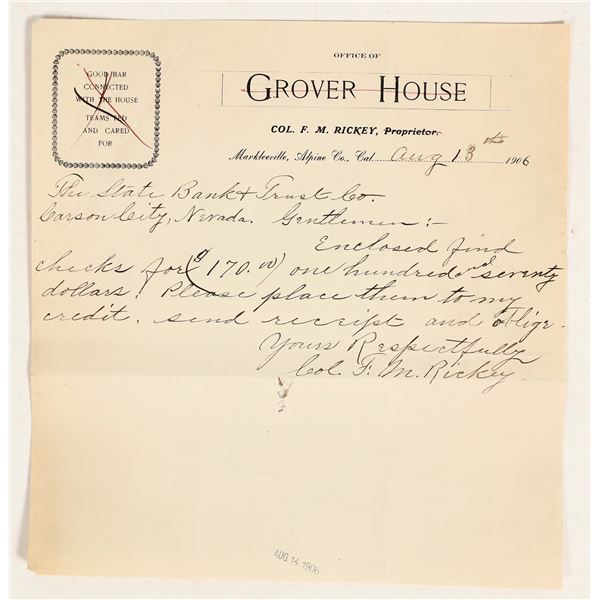 OFFICE OF
GOOD BAR
CONNECTED
WITH THE HOUSE
TEAMS FED
AND CARED
FOR
GROVER HOUSE
COL. F. M. RICKEY, Proprietor.
Markleeville, Alpine Co., Cal. Aug 13th 1906
The State Bank & Trust Co.
Carson City, Nevada. Gentlemen:-
Enclosed find
checks for ($170.00) one hundred and seventy
dollars. Please place them to my
credit. send receipt and oblige.
Yours Respectfully
Col. F. M. Rickey
AUG 14 1906